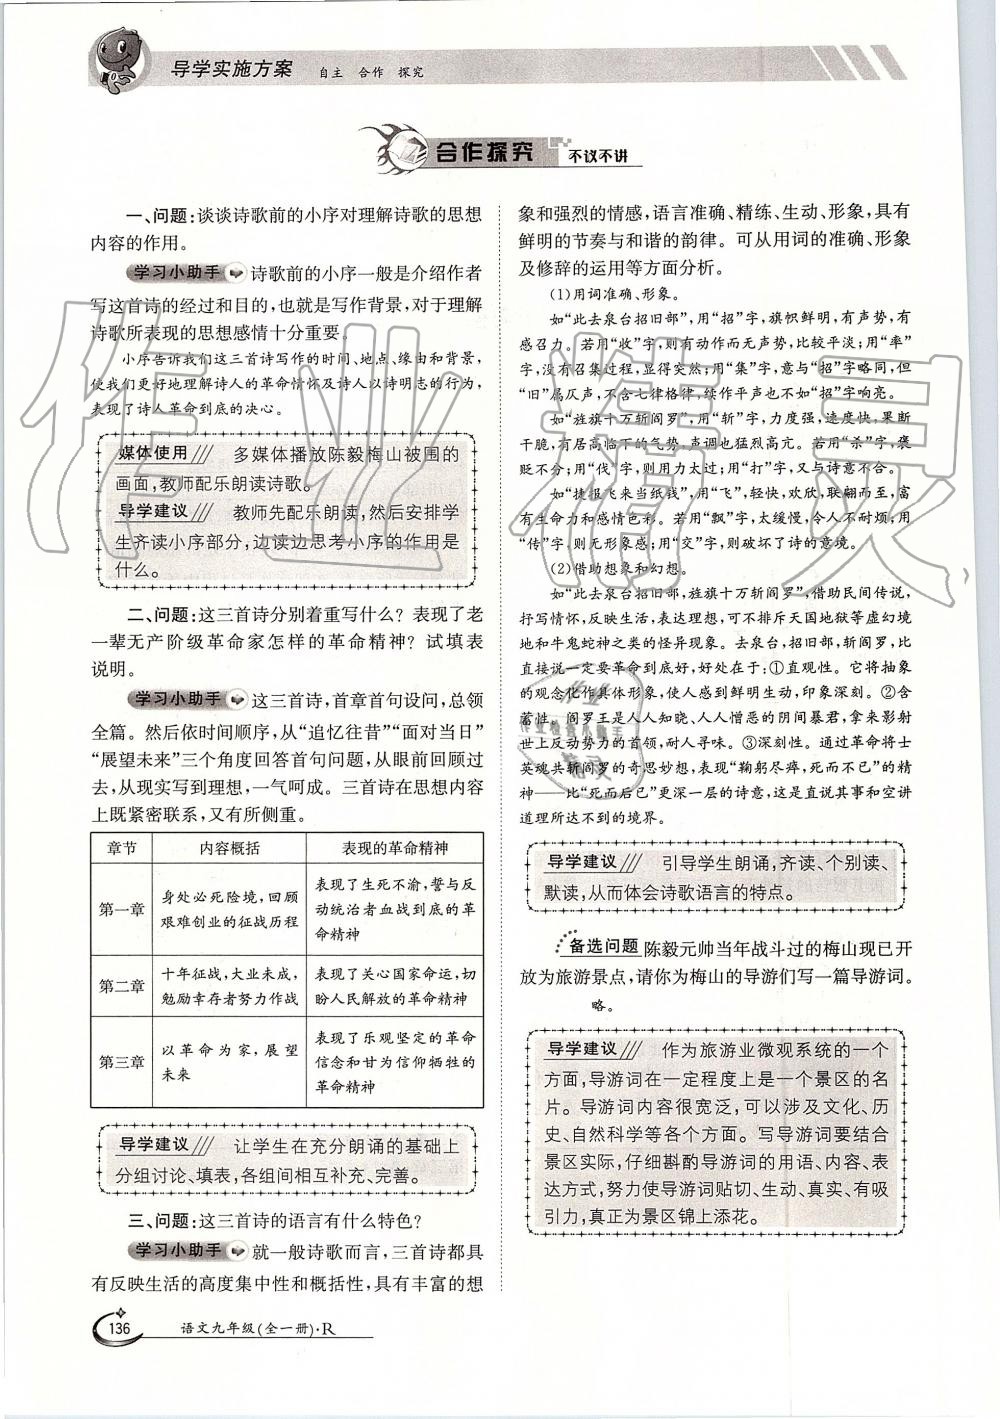 导学实施方案 自主 合作 探究
合作探究 不议不讲
一、问题:谈谈诗歌前的小序对理解诗歌的思想
内容的作用。
学习小助手 诗歌前的小序一般是介绍作者
写这首诗的经过和目的,也就是写作背景,对于理解
诗歌所表现的思想感情十分重要。
小序告诉我们这三首诗写作的时间、地点、缘由和背景,
使我们更好地理解诗人的革命情怀及诗人以诗明志的行为,
表现了诗人革命到底的决心。
媒体使用 多媒体播放陈毅梅山被围的
画面,教师配乐朗读诗歌。
导学建议 教师先配乐朗读,然后安排学
生齐读小序部分,边读边思考小序的作用是
什么。
二、问题:这三首诗分别着重写什么?表现了老
一辈无产阶级革命家怎样的革命精神?试填表
说明。
学习小助手 这三首诗,首章首句设问,总领
全篇。然后依时间顺序,从“追忆往昔”“面对当日”
“展望未来”三个角度回答首句问题,从眼前回顾过
去,从现实写到理想,一气呵成。三首诗在思想内容
上既紧密联系,又有所侧重。
章节 内容概括 表现的革命精神
第一章 身处必死险境,回顾
艰难创业的征战历程
表现了生死不渝,誓与反
动统治者血战到底的革
命精神
第二章 十年征战,大业未成,
勉励幸存者努力作战
表现了关心国家命运,切
盼人民解放的革命精神
第三章 以革命为家,展望
未来
表现了乐观坚定的革命
信念和甘为信仰牺牲的
革命精神
导学建议 让学生在充分朗诵的基础上
分组讨论、填表,各组间相互补充、完善。
三、问题:这三首诗的语言有什么特色?
学习小助手 就一般诗歌而言,三首诗都具
有反映生活的高度集中性和概括性,具有丰富的想
象和强烈的情感,语言准确、精练、生动、形象,具有
鲜明的节奏与和谐的韵律。可从用词的准确、形象
及修辞的运用等方面分析。
(1)用词准确、形象。
如“此去泉台招旧部”,用“招”字,旗帜鲜明,有声势,有
感召力。若用“收”字,则有动作而无声势,比较平淡;用“率”
字,没有召集过程,显得突然;用“集”字,意与“招”字略同,但
“旧”属仄声,不含七律格律,续作平声也不如“招”字响亮。
如“旌旗十万斩阎罗”,用“斩”字,力度强,速度快,果断
干脆,有居高临下的气势,声调也猛烈高亢。若用“杀”字,褒
贬不分;用“伐”字,则用力太过;用“打”字,又与诗意不合。
如“捷报飞来当纸钱”,用“飞”,轻快,欢欣,联翩而至,富
有生命力和感情色彩。若用“飘”字,太缓慢,令人不耐烦;用
“传”字,则无形象感;用“交”字,则破坏了诗的意境。
(2)借助想象和幻想。
如“此去泉台招旧部,旌旗十万斩阎罗”,借助民间传说,
抒写情怀,反映生活,表达理想,可不排斥天国地狱等虚幻境
地和牛鬼蛇神之类的怪异现象。去泉台,招旧部,斩阎罗,比
直接说一定要革命到底好,好处在于:①直观性。它将抽象
的观念化作具体形象,使人感到鲜明生动,印象深刻。②含
蓄性。阎罗王是人人知晓、人人憎恶的阴间暴君,拿来影射
世上反动势力的首领,耐人寻味。③深刻性。通过革命将士
英魂共斩阎罗的奇思妙想,表现“鞠躬尽瘁,死而不已”的精
神——比“死而后已”更深一层的诗意,这是直说其事和空讲
道理所达不到的境界。
导学建议 引导学生朗诵,齐读、个别读、
默读,从而体会诗歌语言的特点。
备选问题 陈毅元帅当年战斗过的梅山现已开
放为旅游景点,请你为梅山的导游们写一篇导游词。
略。
导学建议 作为旅游业微观系统的一个
方面,导游词在一定程度上是一个景区的名
片。导游词内容很宽泛,可以涉及文化、历
史、自然科学等各个方面。写导游词要结合
景区实际,仔细斟酌导游词的用语、内容、表
达方式,努力使导游词贴切、生动、真实、有吸
引力,真正为景区锦上添花。
136 语文九年级(全一册)·R
作业精灵